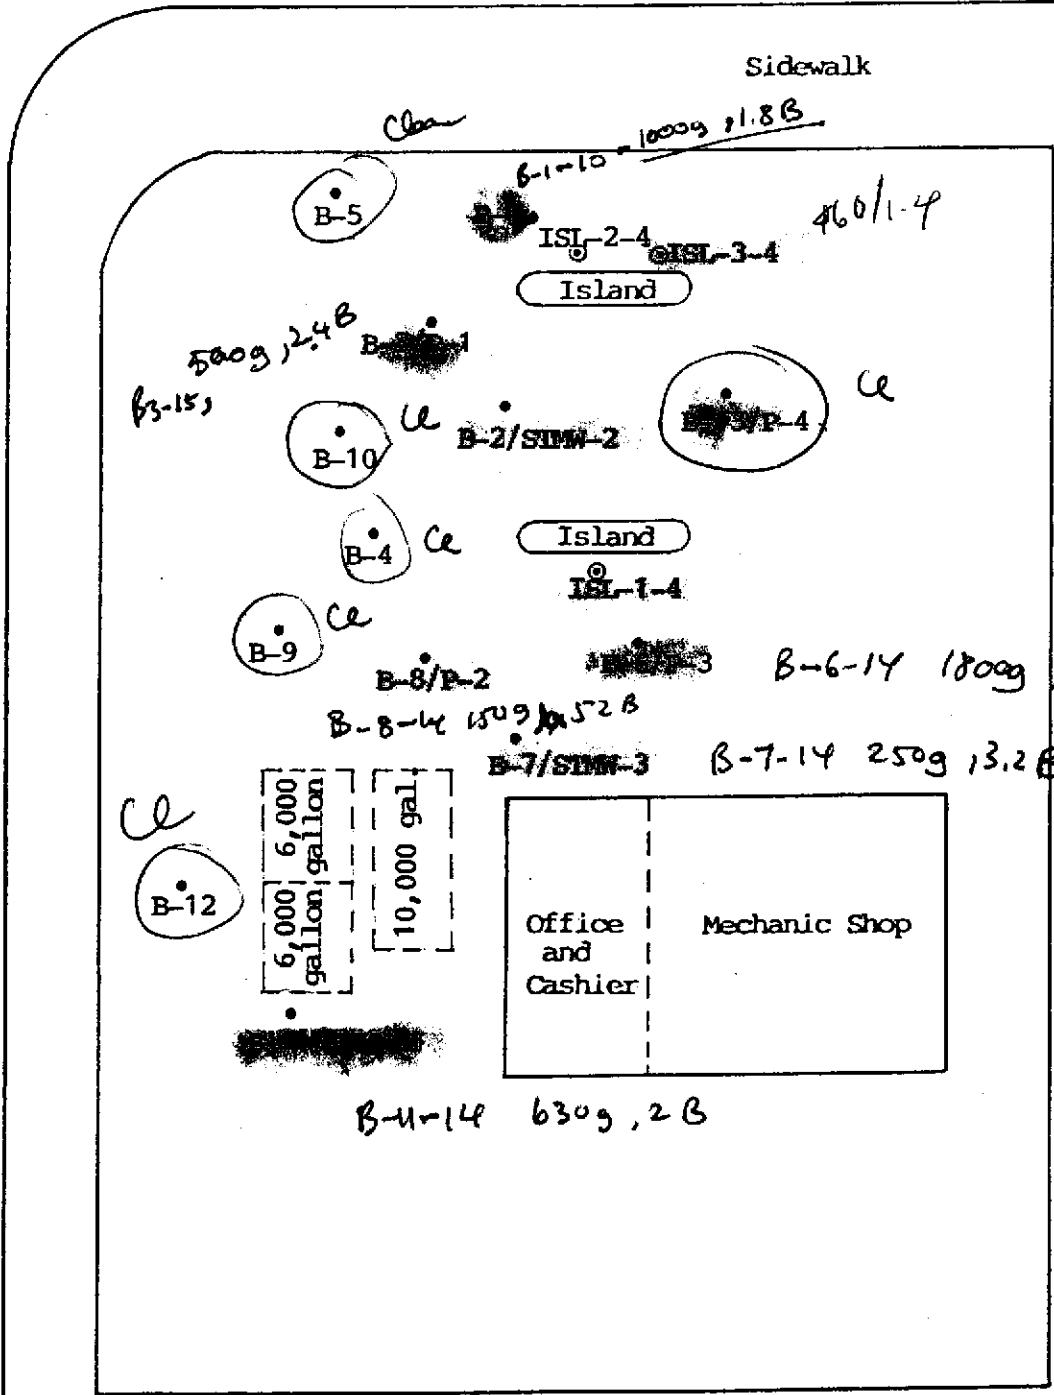 Sidewalk
Clean
B-1-10 - 1000g, 1.8 B
B-5
ISL-2-4
460/1.4
ISL-3-4
Island
500g, 2.4 B
B3-15,
Cl
B-10
Cl
B-2/STMW-2
/P-4
Island
B-4
Cl
ISL-1-4
Cl
B-9
B-8/P-2
P-3
B-6-14 1800g
B-8-14 150g 52 B
B-7/STMW-3
B-7-14 250g, 3.2 B
Cl
6,000 gallon
10,000 gal.
B-12
6,000 gallon
Office and Cashier
Mechanic Shop
B-11-14 630g, 2 B